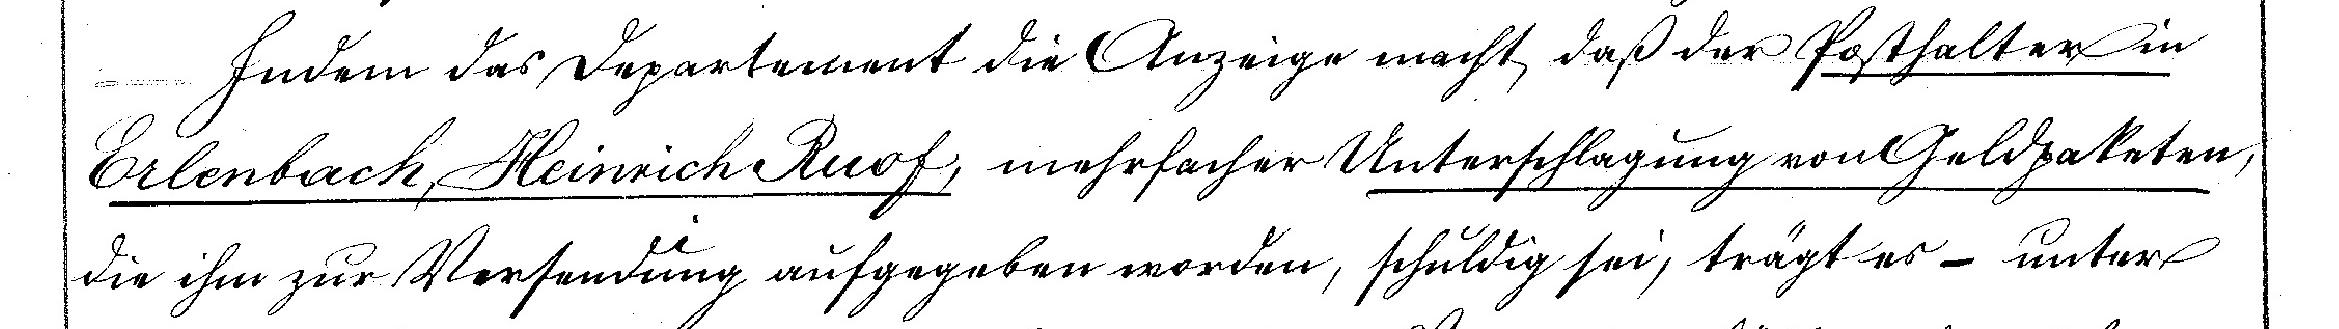 Indem das Departement die Anzeige macht, daß der Posthalter in
Erlenbach, Heinrich Ruof, mehrfacher Unterschlagung von Geldpaketen,
die ihm zur Versendung aufgegeben worden, schuldig sei, trägt es – unter